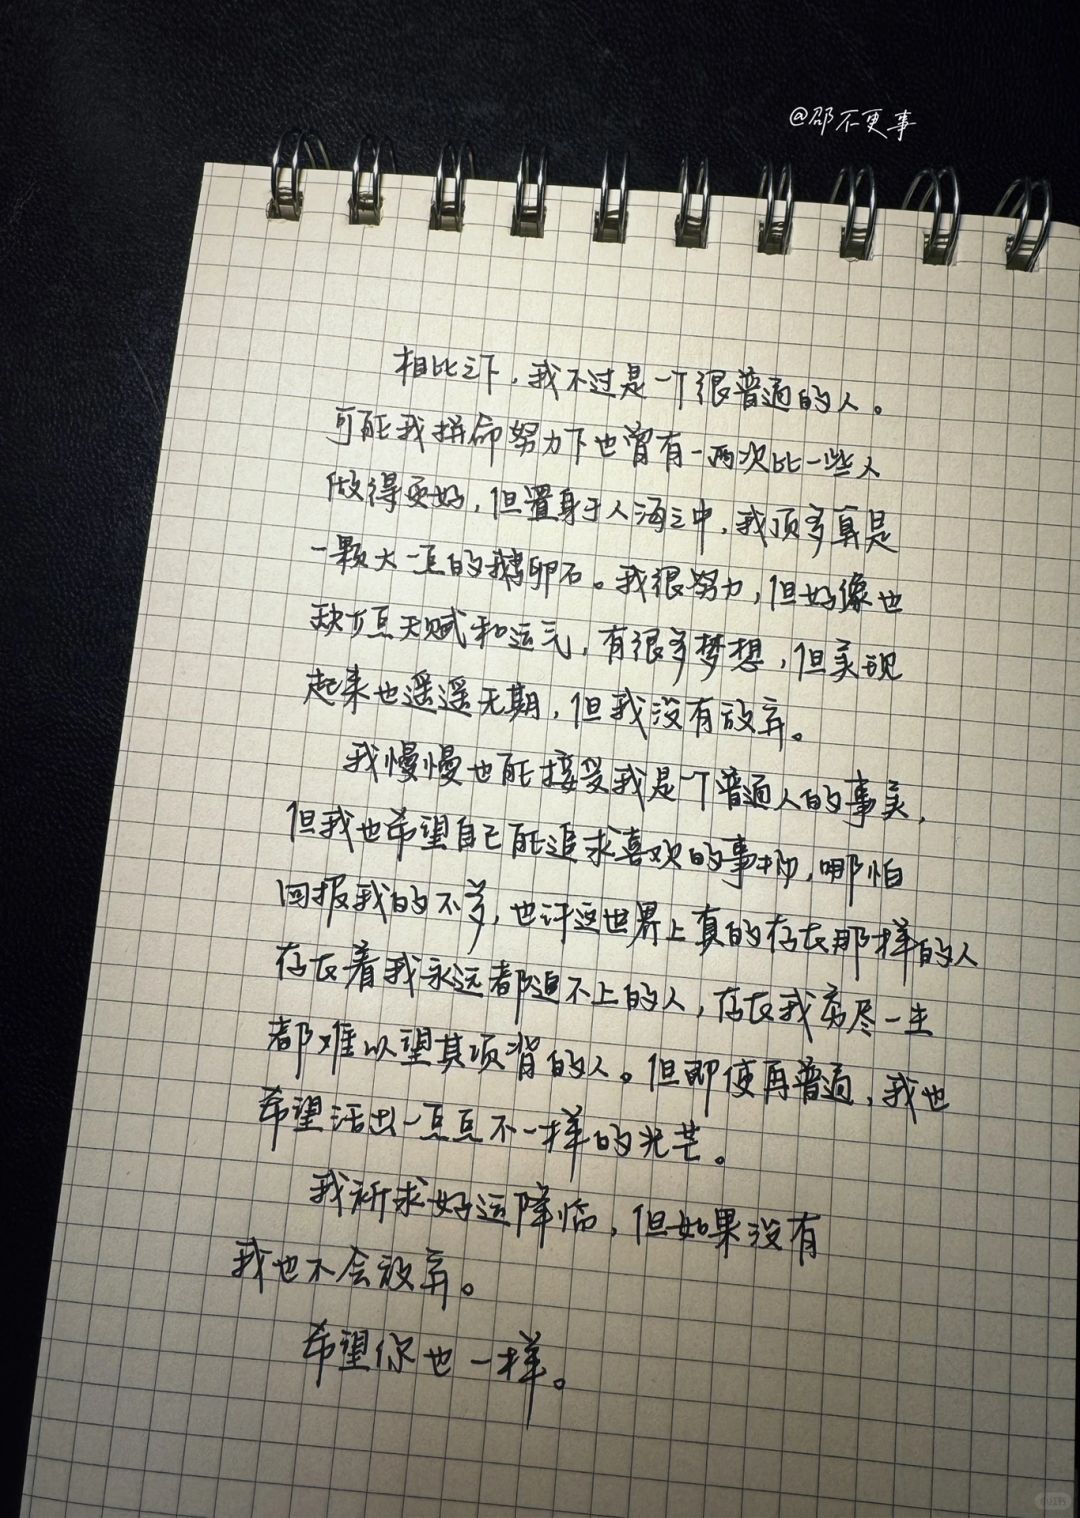 @邵不更事
相比之下，我不过是一个很普通的人。
可能我拼命努力下也曾有一两次比一些人
做得更好，但置身于人海之中，我顶多算是
一颗大一点的鹅卵石。我很努力，但好像也
缺少点天赋和运气，有很多梦想，但实现
起来也遥遥无期，但我没有放弃。
我慢慢也能接受我是一个普通人的事实，
但我也希望自己能追求喜欢的事物，哪怕
回报我的不多，也许这世界上真的存在那样的人
存在着我永远都追不上的人，存在我穷尽一生
都难以望其项背的人。但即使再普通，我也
希望活出一点点不一样的光芒。
我祈求好运降临，但如果没有
我也不会放弃。
希望你也一样。
小红书